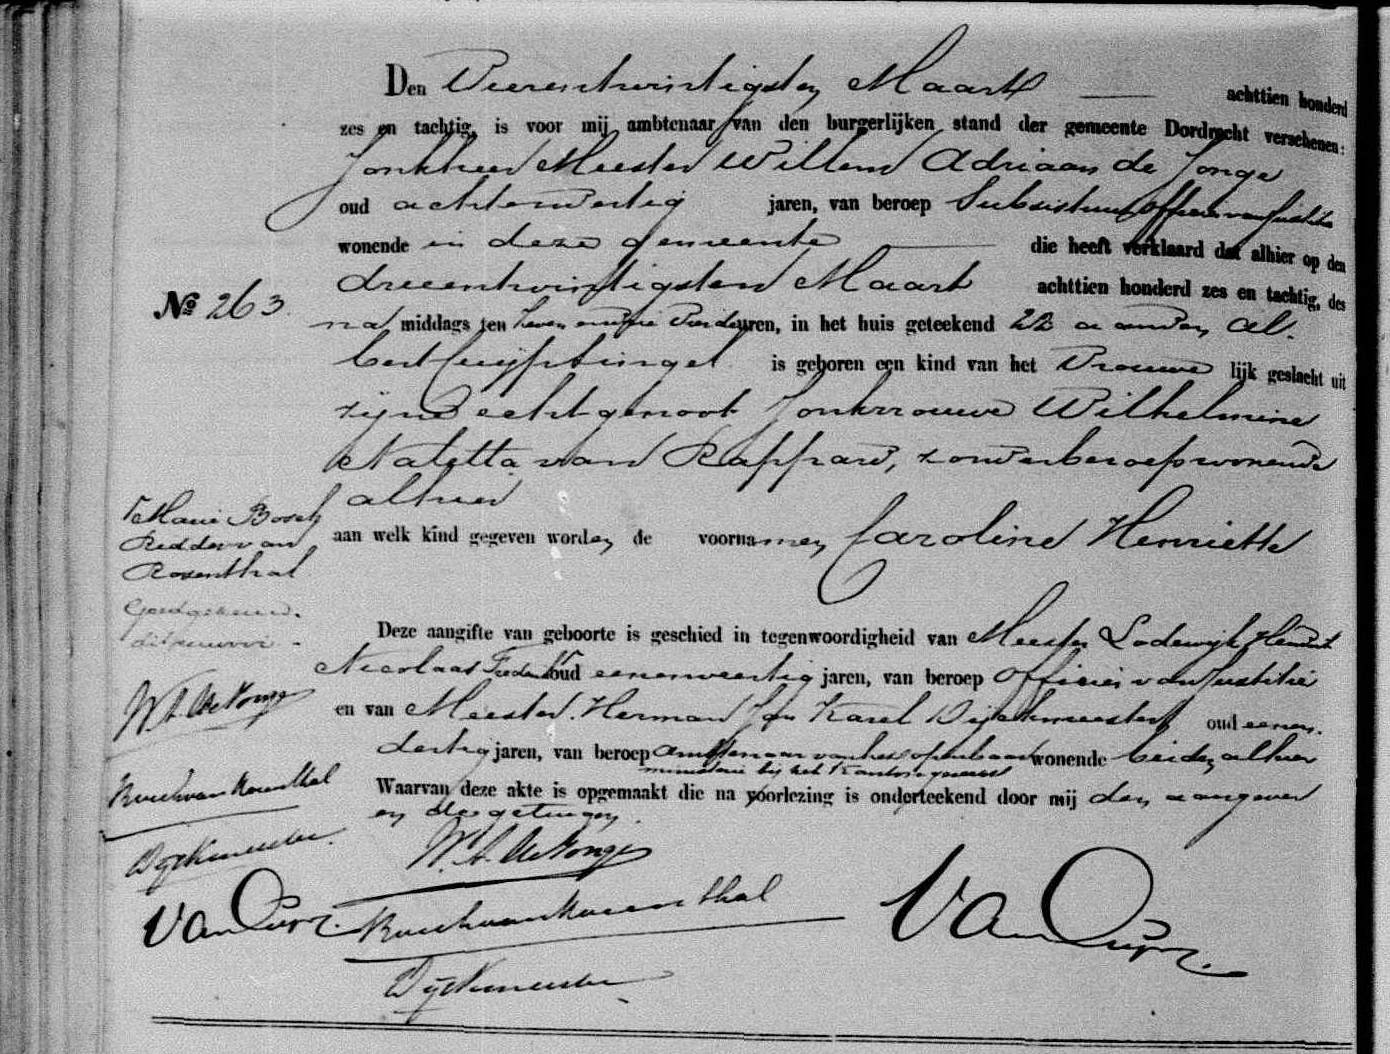 Den Vierentwintigsten Maart achttien honderd
zes en tachtig, is voor mij ambtenaar van den burgerlijken stand der gemeente Dordrecht verschenen:
Jonkheer Meester Willem Adriaan de Jonge
oud achtendertig jaren, van beroep Substituut Officier van Justitie
wonende in deze gemeente die heeft verklaard dat alhier op den
drieentwintigsten Maart achttien honderd zes en tachtig, des
No 263
na middags ten zeven en drie Vierde uren, in het huis geteekend 22 a aan den Al-
bert Cuijpsingel is geboren een kind van het Vrouwe lijk geslacht uit
zijne echtgenoot Jonkvrouwe Wilhelmine
van Rappard, zonder beroep wonende
alhier
aan welk kind gegeven worden de voornamen Caroline Henriette
Marie Bosch
Ridder van
Rosenthal
Goedgekeurd
W A de Jonge
Bosch van Rosenthal
Dijckmeester
Van
Deze aangifte van geboorte is geschied in tegenwoordigheid van Meester Lodewijk Hendrik
Nicolaas oud eenenveertig jaren, van beroep Officier van Justitie
en van Meester Herman Jan Karel Dijckmeester oud eenen-
dertig jaren, van beroep ambtenaar van het openbaar wonende beiden alhier
ministerie bij het Kantongerecht
Waarvan deze akte is opgemaakt die na voorlezing is onderteekend door mij den aangever
en de getuigen.
W. A. de Jonge
Bosch van Rosenthal
Van
Dijckmeester